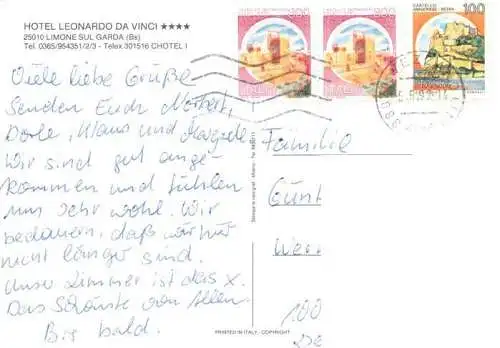 HOTEL LEONARDO DA VINCI ★★★★
25010 LIMONE SUL GARDA (Bs)
Tel. 0365/954351/2/3 - Telex 301516 CHOTEL I
Viele liebe Grüße
Senden Euch Norbert,
Dorle, Klaus und
Wir sind gut ange-
kommen und fühlen
uns sehr wohl. Wir
bedauern, daß wir hier
nicht länger sind.
Unser Zimmer ist das x.
Das Schönste von Allen.
Bis bald.
300
300
100
ITALIA
ITALIA
Familie
Günt
Wer
100
DE
PRINTED IN ITALY - COPYRIGHT